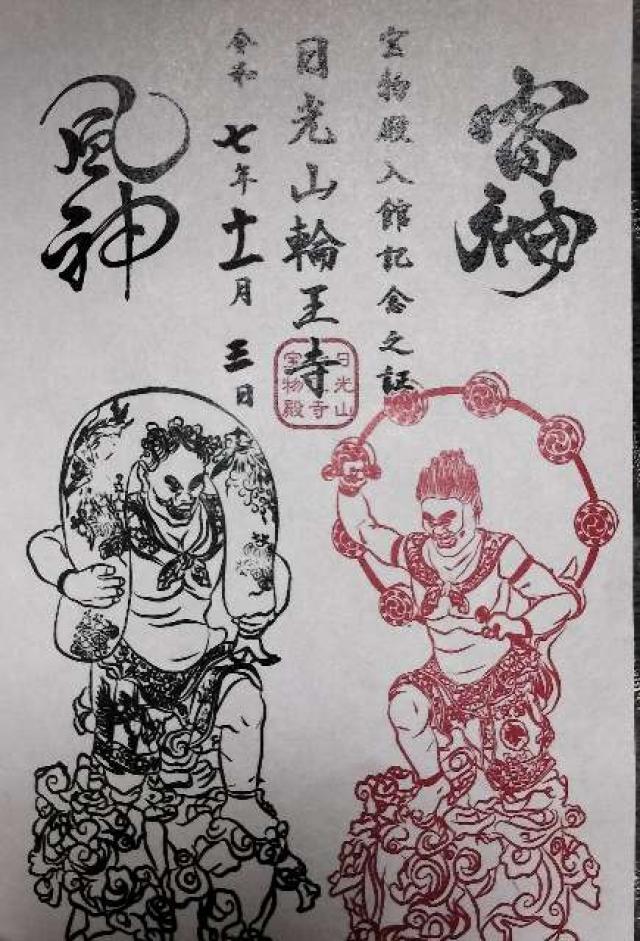 雷神
宝物殿入館記念之証
日光山輪王寺
令和七年十一月三日
風神
日光山
寺
宝物殿